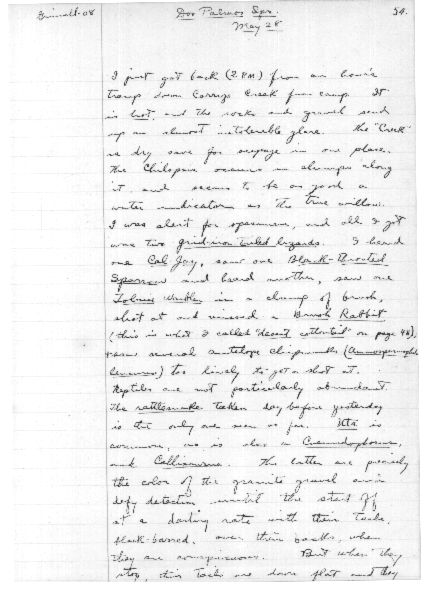 Grinnell-08
Dos Palmos Spr.
54.
May 28
I just got back (2 PM) from an hour's
tramp down Carrizo Creek from camp. It
is hot and the rocks and gravel send
up an almost intolerable glare. The "Creek"
is dry save for seepage in one place.
The Chilopsis occurs in clumps along
it and seems to be as good a
water indicator as the true willow.
I was alert for specimens, and all I got
was two gridiron tailed lizards. I heard
one Cal Jay, saw one Black-throated
Sparrow and heard another, saw one
Tolmies Warbler in a clump of brush,
shot at and missed a Brush Rabbit
(this is what I called "desert cottontail" on page 48),
saw several antelope chipmunks (Ammospermophilus
leucurus) too lively to get a shot at.
Reptiles are not particularly abundant.
The rattlesnake taken day before yesterday
is the only one seen so far. Uta is
common, as is also a Cnemidophorus,
and Callisaurus. The latter are precisely
the color of the granite gravel and
defy detection until they start off
at a darting rate with their tails,
black-barred, over their backs, when
they are conspicuous. But when they
stop, their tails are down flat and they